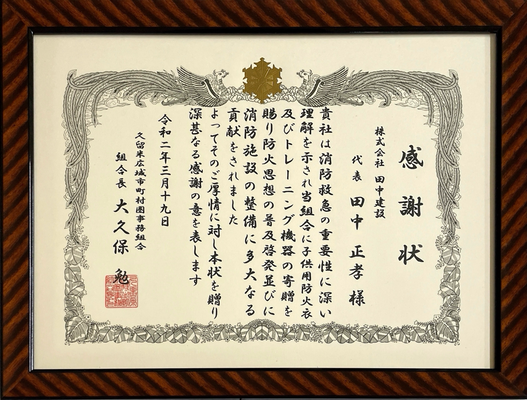 感謝状
株式会社 田中建設
代表 田中正孝様
貴社は消防救急の重要性に深い
理解を示され当組合に子供用防火衣
及びトレーニング機器の寄贈を
賜り防火思想の普及啓発並びに
消防施設の整備に多大なる
貢献をされました
よってそのご厚情に対し本状を贈り
深甚なる感謝の意を表します
令和二年三月十九日
久留米広域市町村圏事務組合
組合長 大久保勉